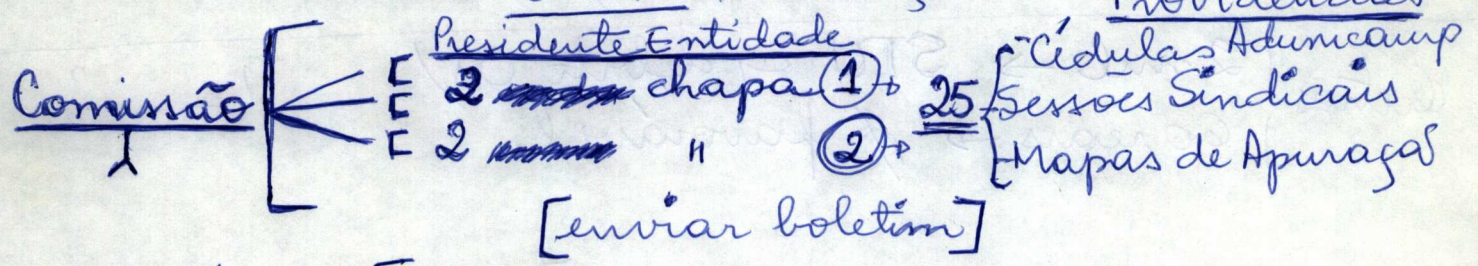 Providências
Presidente Entidade
Comissão
2 chapa 1
2 " 2
25
- Cédulas Adunicamp
- Sessões Sindicais
- Mapas de Apuração
[enviar boletim]